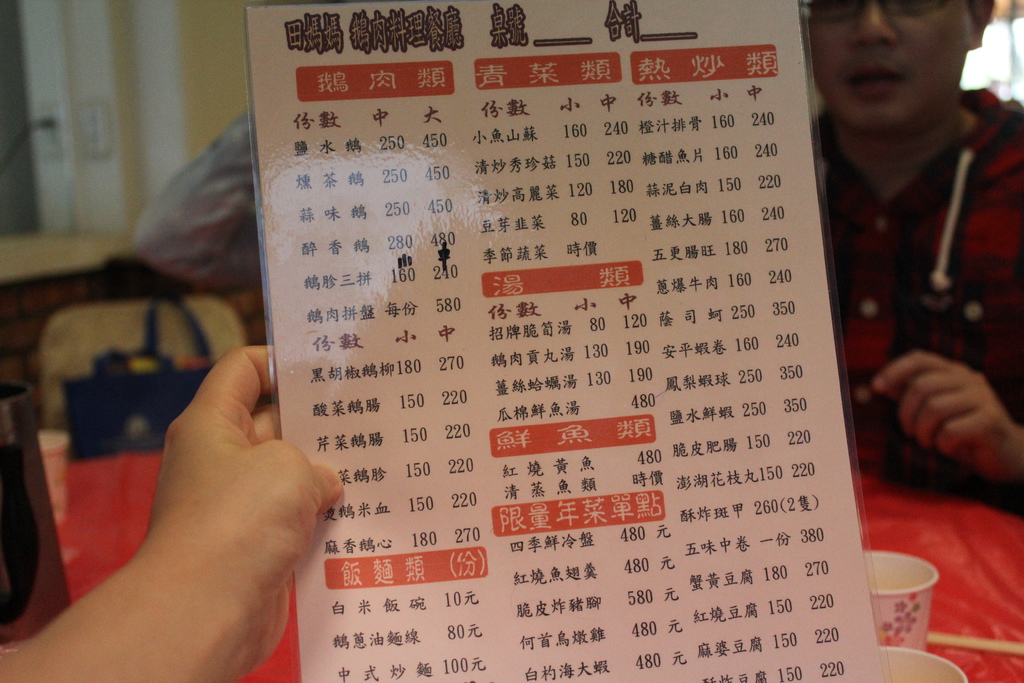 田媽媽 鵝肉料理餐廳 桌號____ 合計____
鵝肉類
份數 中 大
鹽水鵝 250 450
燻茶鵝 250 450
蒜味鵝 250 450
醉香鵝 280 480
鵝胗三拼 160 240
鵝肉拼盤 每份 580
份數 小 中
黑胡椒鵝柳 180 270
酸菜鵝腸 150 220
芹菜鵝腸 150 220
菜鵝胗 150 220
鵝米血 150 220
麻香鵝心 180 270
飯麵類(份)
白米飯碗 10元
鵝蔥油麵線 80元
中式炒麵 100元
青菜類
份數 小 中
小魚山蘇 160 240
清炒秀珍菇 150 220
清炒高麗菜 120 180
豆芽韭菜 80 120
季節蔬菜 時價
湯類
份數 小 中
招牌脆筍湯 80 120
鵝肉貢丸湯 130 190
薑絲蛤蠣湯 130 190
瓜棉鮮魚湯 480
鮮魚類
紅燒黃魚 480
清蒸魚類 時價
限量年菜單點
四季鮮冷盤 480 元
紅燒魚翅羹 480 元
脆皮炸豬腳 580 元
何首烏燉雞 480 元
白灼海大蝦 480 元
熱炒類
份數 小 中
橙汁排骨 160 240
糖醋魚片 160 240
蒜泥白肉 150 220
薑絲大腸 160 240
五更腸旺 180 270
蔥爆牛肉 160 240
蔭司蚵 250 350
安平蝦卷 160 240
鳳梨蝦球 250 350
鹽水鮮蝦 250 350
脆皮肥腸 150 220
澎湖花枝丸 150 220
酥炸斑甲 260(2隻)
五味中卷 一份 380
蟹黃豆腐 180 270
紅燒豆腐 150 220
麻婆豆腐 150 220
酥炸豆腐 150 220